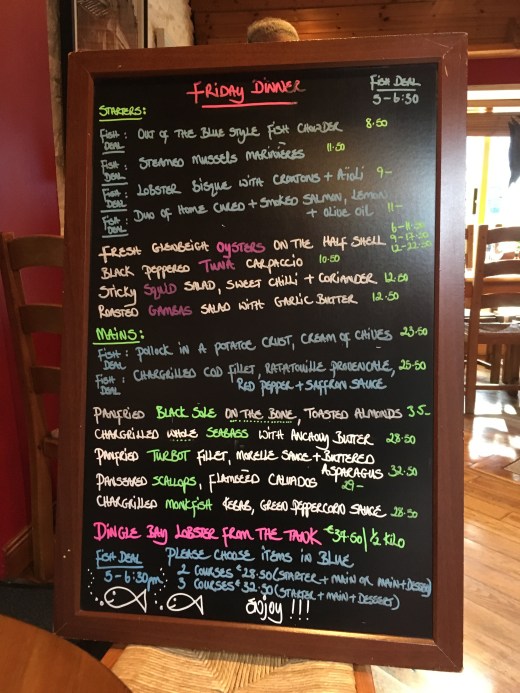 FRIDAY DINNER
FISH DEAL
5-6:30
STARTERS:
FISH DEAL : OUT OF THE BLUE STYLE FISH CHOWDER 8.50
FISH DEAL : STEAMED MUSSELS MARINIÈRES 11.50
FISH DEAL : LOBSTER BISQUE WITH CROUTONS + AÏOLI 9-
FISH DEAL : DUO OF HOME CURED + SMOKED SALMON, LEMON
+ OLIVE OIL 11-
FRESH GLENBEIGH OYSTERS ON THE HALF SHELL 6-11.50
9-17.50
12-22.50
BLACK PEPPERED TUNA CARPACCIO 10.50
STICKY SQUID SALAD, SWEET CHILLI + CORIANDER 12.50
ROASTED GAMBAS SALAD WITH GARLIC BUTTER 12.50
MAINS:
FISH DEAL : POLLOCK IN A POTATOE CRUST, CREAM OF CHIVES 23.50
FISH DEAL : CHARGRILLED COD FILLET, RATATOUILLE PROVENCALE, 25.50
RED PEPPER + SAFFRON SAUCE
PANFRIED BLACK SOLE ON THE BONE, TOASTED ALMONDS 35-
CHARGRILLED WHOLE SEABASS WITH ANCHOVY BUTTER 28.50
PANFRIED TURBOT FILLET, MORELLE SAUCE + BUTTERED
ASPARAGUS 32.50
PANSEARED SCALLOPS, FLAMBÉED CALVADOS 29-
CHARGRILLED MONKFISH KEBAB, GREEN PEPPERCORN SAUCE 28.50
DINGLE BAY LOBSTER FROM THE TANK €34.50/½ KILO
FISH DEAL PLEASE CHOOSE ITEMS IN BLUE
5-6:30pm 2 COURSES €28.50 (STARTER + MAIN OR MAIN + DESSERT)
3 COURSES €32.50 (STARTER + MAIN + DESSERT)
Enjoy !!!